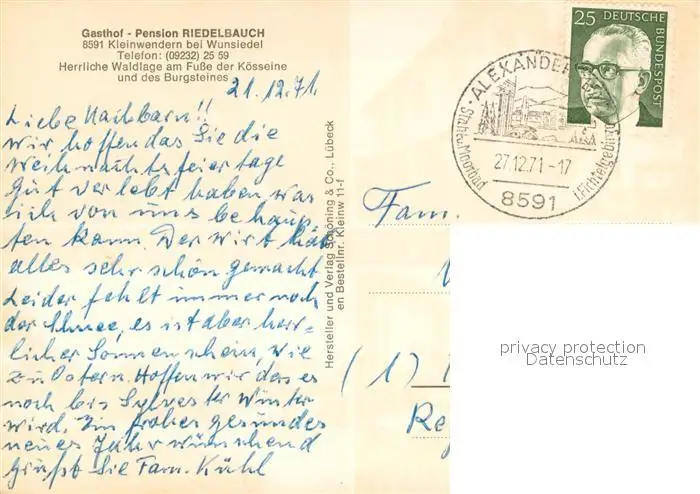 Gasthof - Pension RIEDELBAUCH
8591 Kleinwendern bei Wunsiedel
Telefon: (09232) 25 59
Herrliche Waldlage am Fuße der Kösseine
und des Burgsteines
21.12.71.
Liebe Nachbarn!!
Wir hoffen das Sie die
Weihnachtsfeiertage
Gut verlebt haben was
ich von uns behaup-
ten kann. Der Wirt hat
alles sehr schön gemacht
Leider fehlt immer noch
der Schnee, es ist aber herr-
licher Sonnenschein, wie
zu Ostern. Hoffen wir das es
noch bis Sylvester Winter
wird. Ein frohes gesundes
neues Jahr wünschend
grüßt Sie Fam. Kühl
Hersteller und Verlag Schöning & Co., Lübeck
en Bestellnr. Kleinw 11-f
25 DEUTSCHE
BUNDESPOST
ALEXANDER
Stahl-u.Moorbad
i.Fichtelgebirge
27.12.71-17
8591
Fam.
(1)
Re
privacy protection
Datenschutz